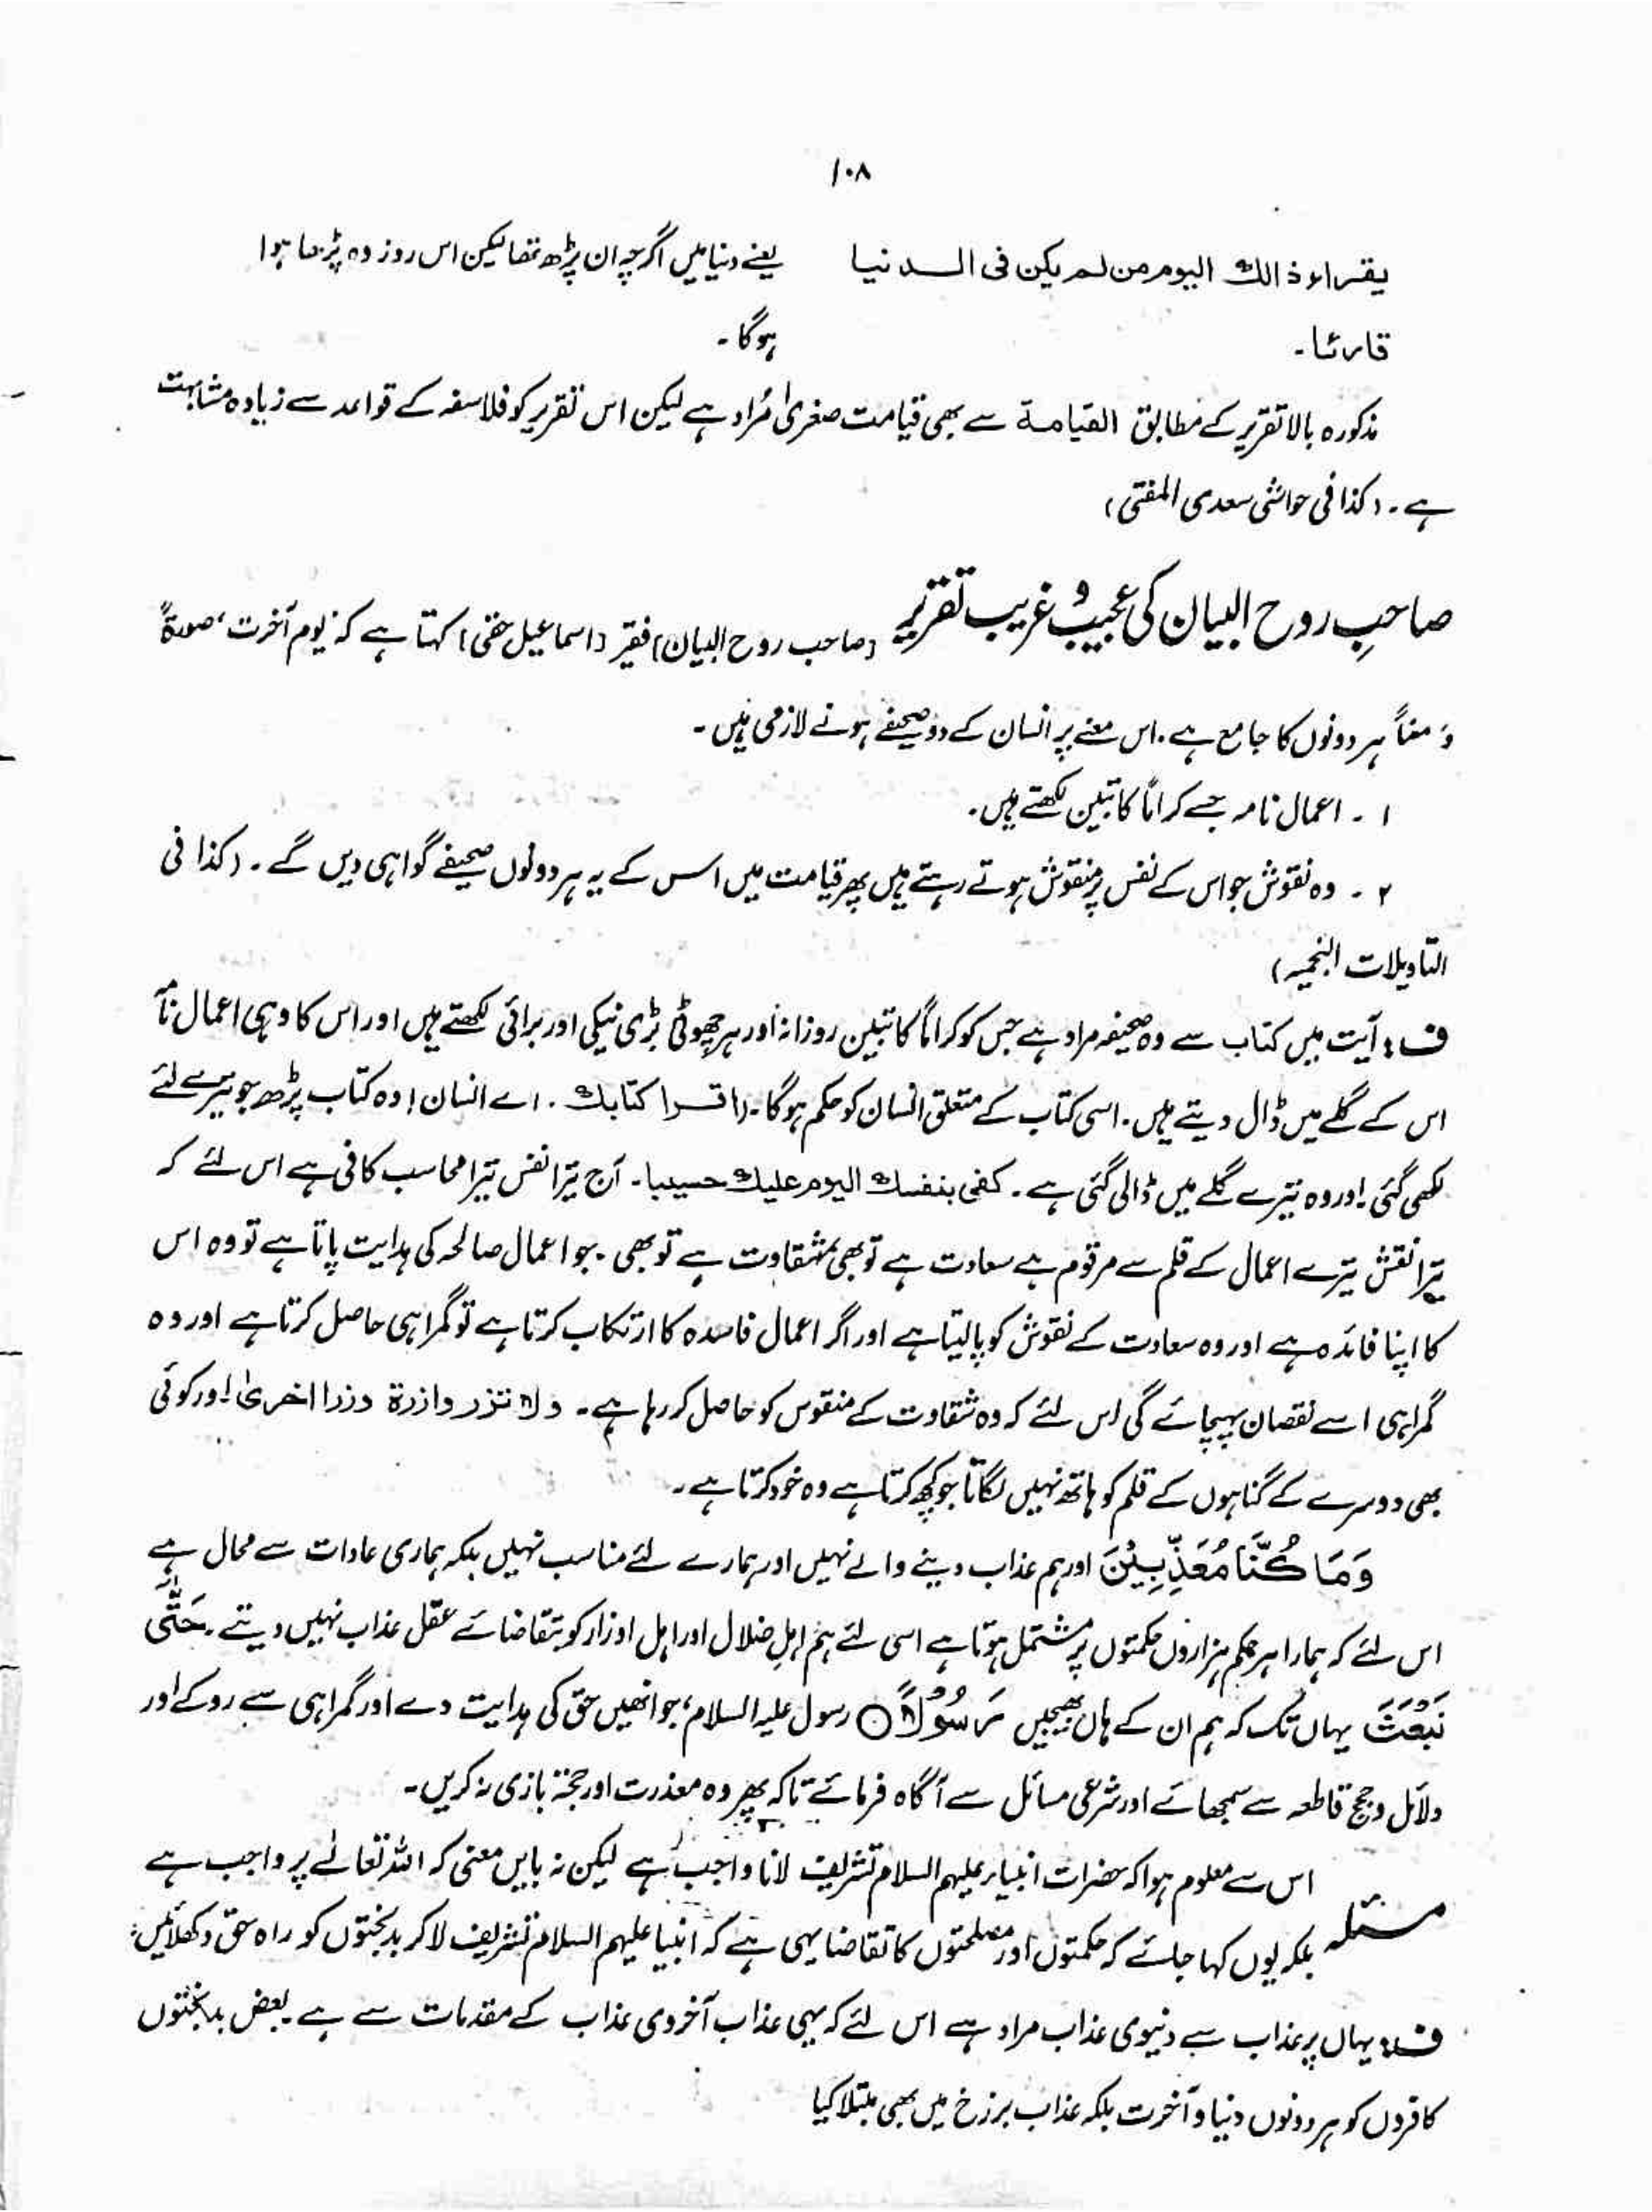 ۱۰۸
یقراء ذالك الیوم من لم یکن فی الدنیا یعنے دنیا میں اگرچہ ان پڑھ تھا لیکن اس روز وہ پڑھا ہوا
قارئا۔ ہوگا۔
مذکورہ بالا تقریر کے مطابق القیامۃ سے بھی قیامت صغریٰ مُراد ہے لیکن اس تقریر کو فلاسفہ کے قواعد سے زیادہ مشابہت
ہے۔ (کذا فی حواشی سعدی المفتی)
صاحبِ روح البیان کی عجیب و غریب تقریر (صاحب روح البیان) فقیر (اسماعیل حقی) کہتا ہے کہ یوم آخرت، صورۃً
و معناً ہر دونوں کا جامع ہے۔ اس معنے پر انسان کے دو صحیفے ہونے لازمی ہیں۔
۱۔ اعمال نامہ جسے کراماً کاتبین لکھتے ہیں۔
۲۔ وہ نقوش جو اس کے نفس پر منقوش ہوتے رہتے ہیں پھر قیامت میں اس کے یہ ہر دونوں صحیفے گواہی دیں گے۔ (کذا فی
التاویلات النجمیہ)
ف: آیت میں کتاب سے وہ صحیفہ مراد ہے جس کو کراماً کاتبین روزانہ اور ہر چھوٹی بڑی نیکی اور برائی لکھتے ہیں اور اس کا وہی اعمال نامہ
اس کے گلے میں ڈال دیتے ہیں۔ اسی کتاب کے متعلق انسان کو حکم ہوگا۔ (اقرا کتابك۔ اے انسان! وہ کتاب پڑھ جو تیرے لئے
لکھی گئی اور وہ تیرے گلے میں ڈالی گئی ہے۔ کفی بنفسك الیوم علیك حسیبا۔ آج تیرا نفس تیرا محاسب کافی ہے اس لئے کہ
تیرا نقش تیرے اعمال کے قلم سے مرقوم ہے سعادت ہے تو بھی شقاوت ہے تو بھی۔ جو اعمال صالحہ کی ہدایت پاتا ہے تو وہ اس
کا اپنا فائدہ ہے اور وہ سعادت کے نقوش کو پالیتا ہے اور اگر اعمال فاسدہ کا ارتکاب کرتا ہے تو گمراہی حاصل کرتا ہے اور وہ
گمراہی اسے نقصان پہچائے گی اس لئے کہ وہ شقاوت کے منقوس کو حاصل کر رہا ہے۔ ولا تزر وازرۃ وزرا اخریٰ اور کوئی
بھی دوسرے کے گناہوں کے قلم کو ہاتھ نہیں لگاتا جو کچھ کرتا ہے وہ خود کرتا ہے۔
وَمَا كُنَّا مُعَذِّبِيْنَ اور ہم عذاب دینے والے نہیں اور ہمارے لئے مناسب نہیں بلکہ ہماری عادات سے محال ہے
اس لئے کہ ہمارا ہر حکم ہزاروں حکمتوں پر مشتمل ہوتا ہے اسی لئے ہم اہل ضلال اور اہل اوزار کو بتقاضائے عقل عذاب نہیں دیتے۔ حَتّٰى
نَبْعَثَ یہاں تک کہ ہم ان کے ہاں بھیجیں رَسُوْلًا ○ رسول علیہ السلام، جو انھیں حق کی ہدایت دے اور گمراہی سے روکے اور
دلائل و حجج قاطعہ سے سمجھائے اور شرعی مسائل سے آگاہ فرمائے تاکہ پھر وہ معذرت اور حجۃ بازی نہ کریں۔
اس سے معلوم ہوا کہ حضرات انبیاء علیہم السلام تشریف لانا واجب ہے لیکن نہ بایں معنی کہ اللہ تعالیٰ پر واجب ہے
مسئلہ بلکہ یوں کہا جائے کہ حکمتوں اور مصلحتوں کا تقاضا یہی ہے کہ انبیا علیہم السلام تشریف لا کر بدبختوں کو راہ حق دکھلائیں۔
ف: یہاں پر عذاب سے دنیوی عذاب مراد ہے اس لئے کہ یہی عذاب آخروی عذاب کے مقدمات سے ہے بعض بدبختوں
کافروں کو ہر دونوں دنیا و آخرت بلکہ عذاب برزخ میں بھی مبتلا کیا